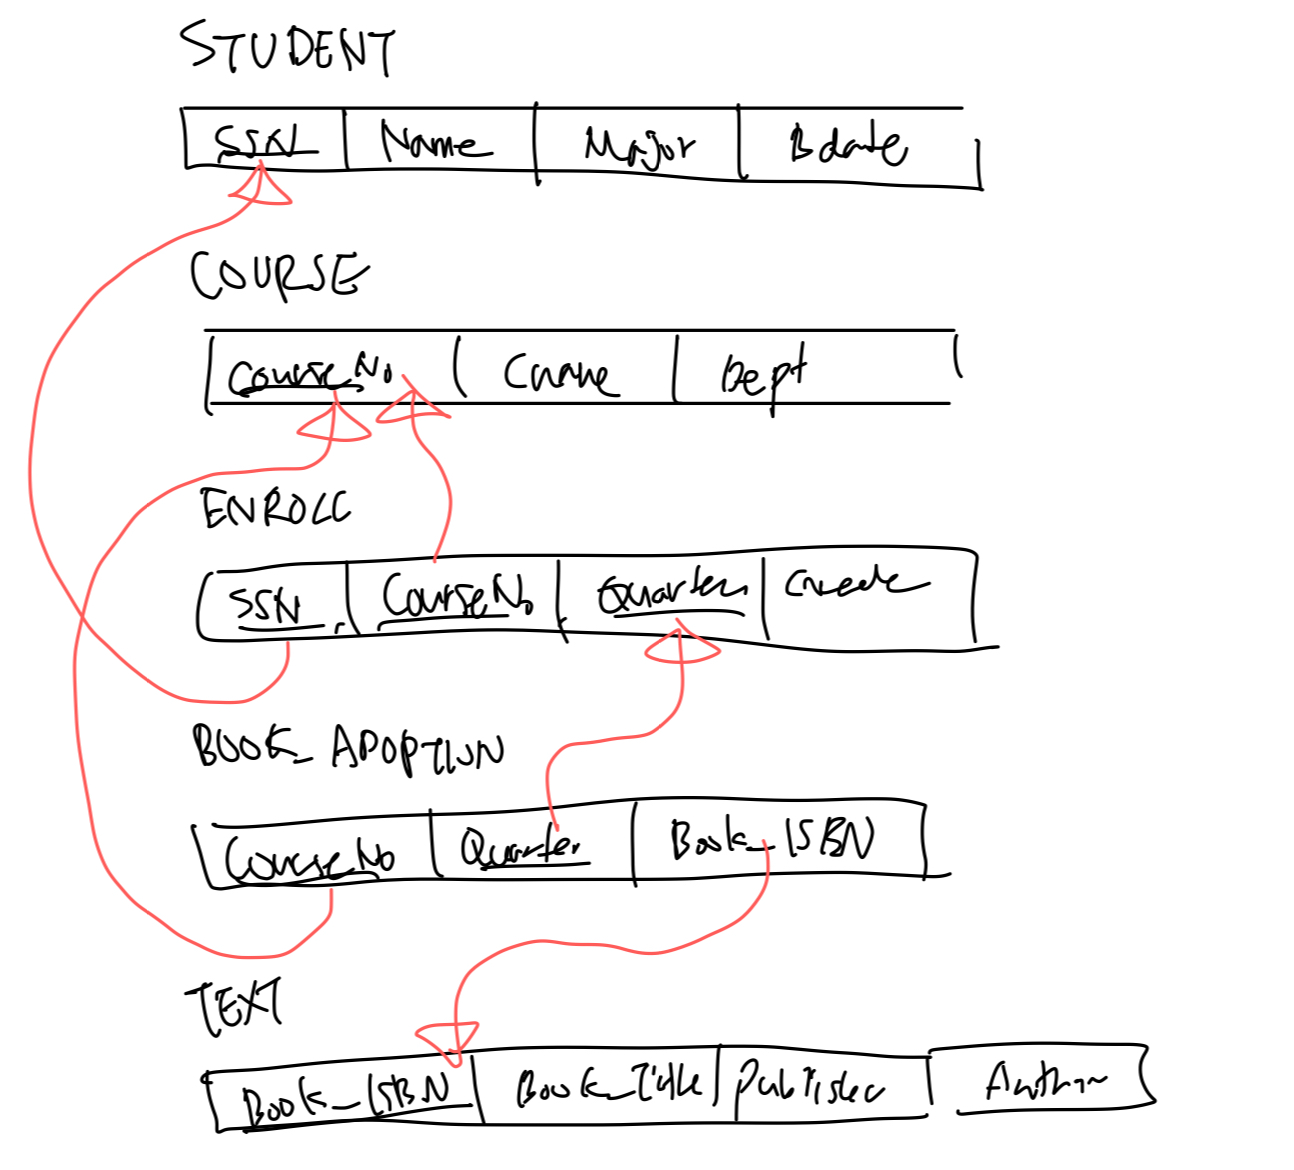 STUDENT
SSN Name Major Bdate
COURSE
Course_No Cname Dept
ENROLL
SSN Course_No Quarter Grade
BOOK_ADOPTION
Course_No Quarter Book_ISBN
TEXT
Book_ISBN Book_Title Publisher Author